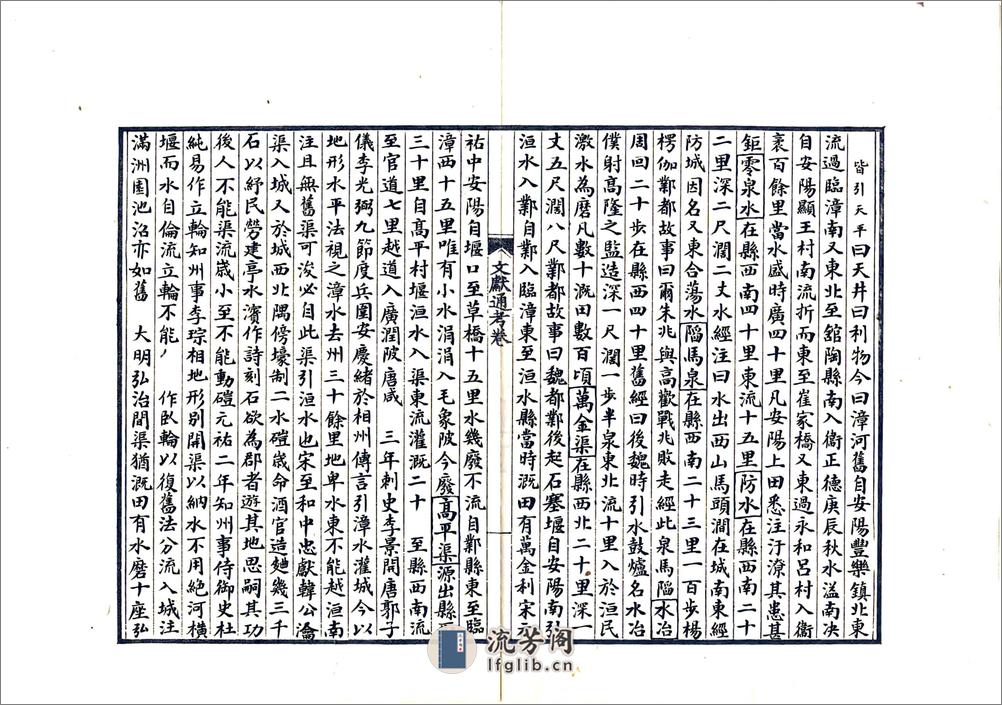 皆引天平曰天井曰利物今曰漳河舊自安陽豐樂鎮北東
流過臨漳南又東北至舘陶縣南入衞正德庚辰秋水溢南决
自安陽顯王村南流折而東至崔家橋又東過永和呂村入衞
袤百餘里當水盛時廣四十里凡安陽上田悉注汙潦其患甚
鉅零泉水在縣西南四十里東流十五里防水在縣西南二十
二里深二尺濶二丈水經注曰水出西山馬頭澗在城南東經
防城因名又東合蕩水陷馬泉在縣西南二十三里一百步楊
楞伽鄴都故事曰爾朱兆與高歡戰兆敗走經此泉馬陷水冶
周回二十步在縣西四十里舊經曰後魏時引水鼓爐名水冶
僕射高隆之監造深一尺濶一步半泉東北流十里入於洹民
激水為磨凡數十溉田數百頃萬金渠在縣西北二十里深一
丈五尺濶八尺鄴都故事曰魏都鄴後起石塞堰自安陽南引
洹水入鄴自鄴入臨漳東至洹水縣當時溉田有萬金利宋元
文獻通考卷
祐中安陽自堰口至草橋十五里水幾廢不流自鄴縣東至臨
漳西十五里唯有小水涓涓入毛象陂今廢高平渠源出縣西
三十里自高平村堰洹水入渠東流灌溉二十 至縣西南流
至官道七里越道入廣潤陂唐咸 三年刺史李景開唐郭子
儀李光弼九節度兵圍安慶緒於相州傳言引漳水灌城今以
地形水平法視之漳水去州三十餘里地卑水東不能越洹南
注且無舊渠可浚必自此渠引洹水也宋至和中忠獻韓公濬
渠入城又於城西北隅傍壕制二水磑歲命酒官造麺幾三千
石以紓民勞建亭水濱作詩刻石欲為郡者遊其地思嗣其功
後人不能渠流嵗小至不能動磑元祐二年知州事侍御史杜
純易作立輪知州事李琮相地形別開渠以納水不用絶河橫
堰而水自倫流立輪不能 作臥輪以復舊法分流入城注
滿洲園池沼亦如舊 大明弘治間渠猶溉田有水磨十座弘
流芳阁
lfglib.cn